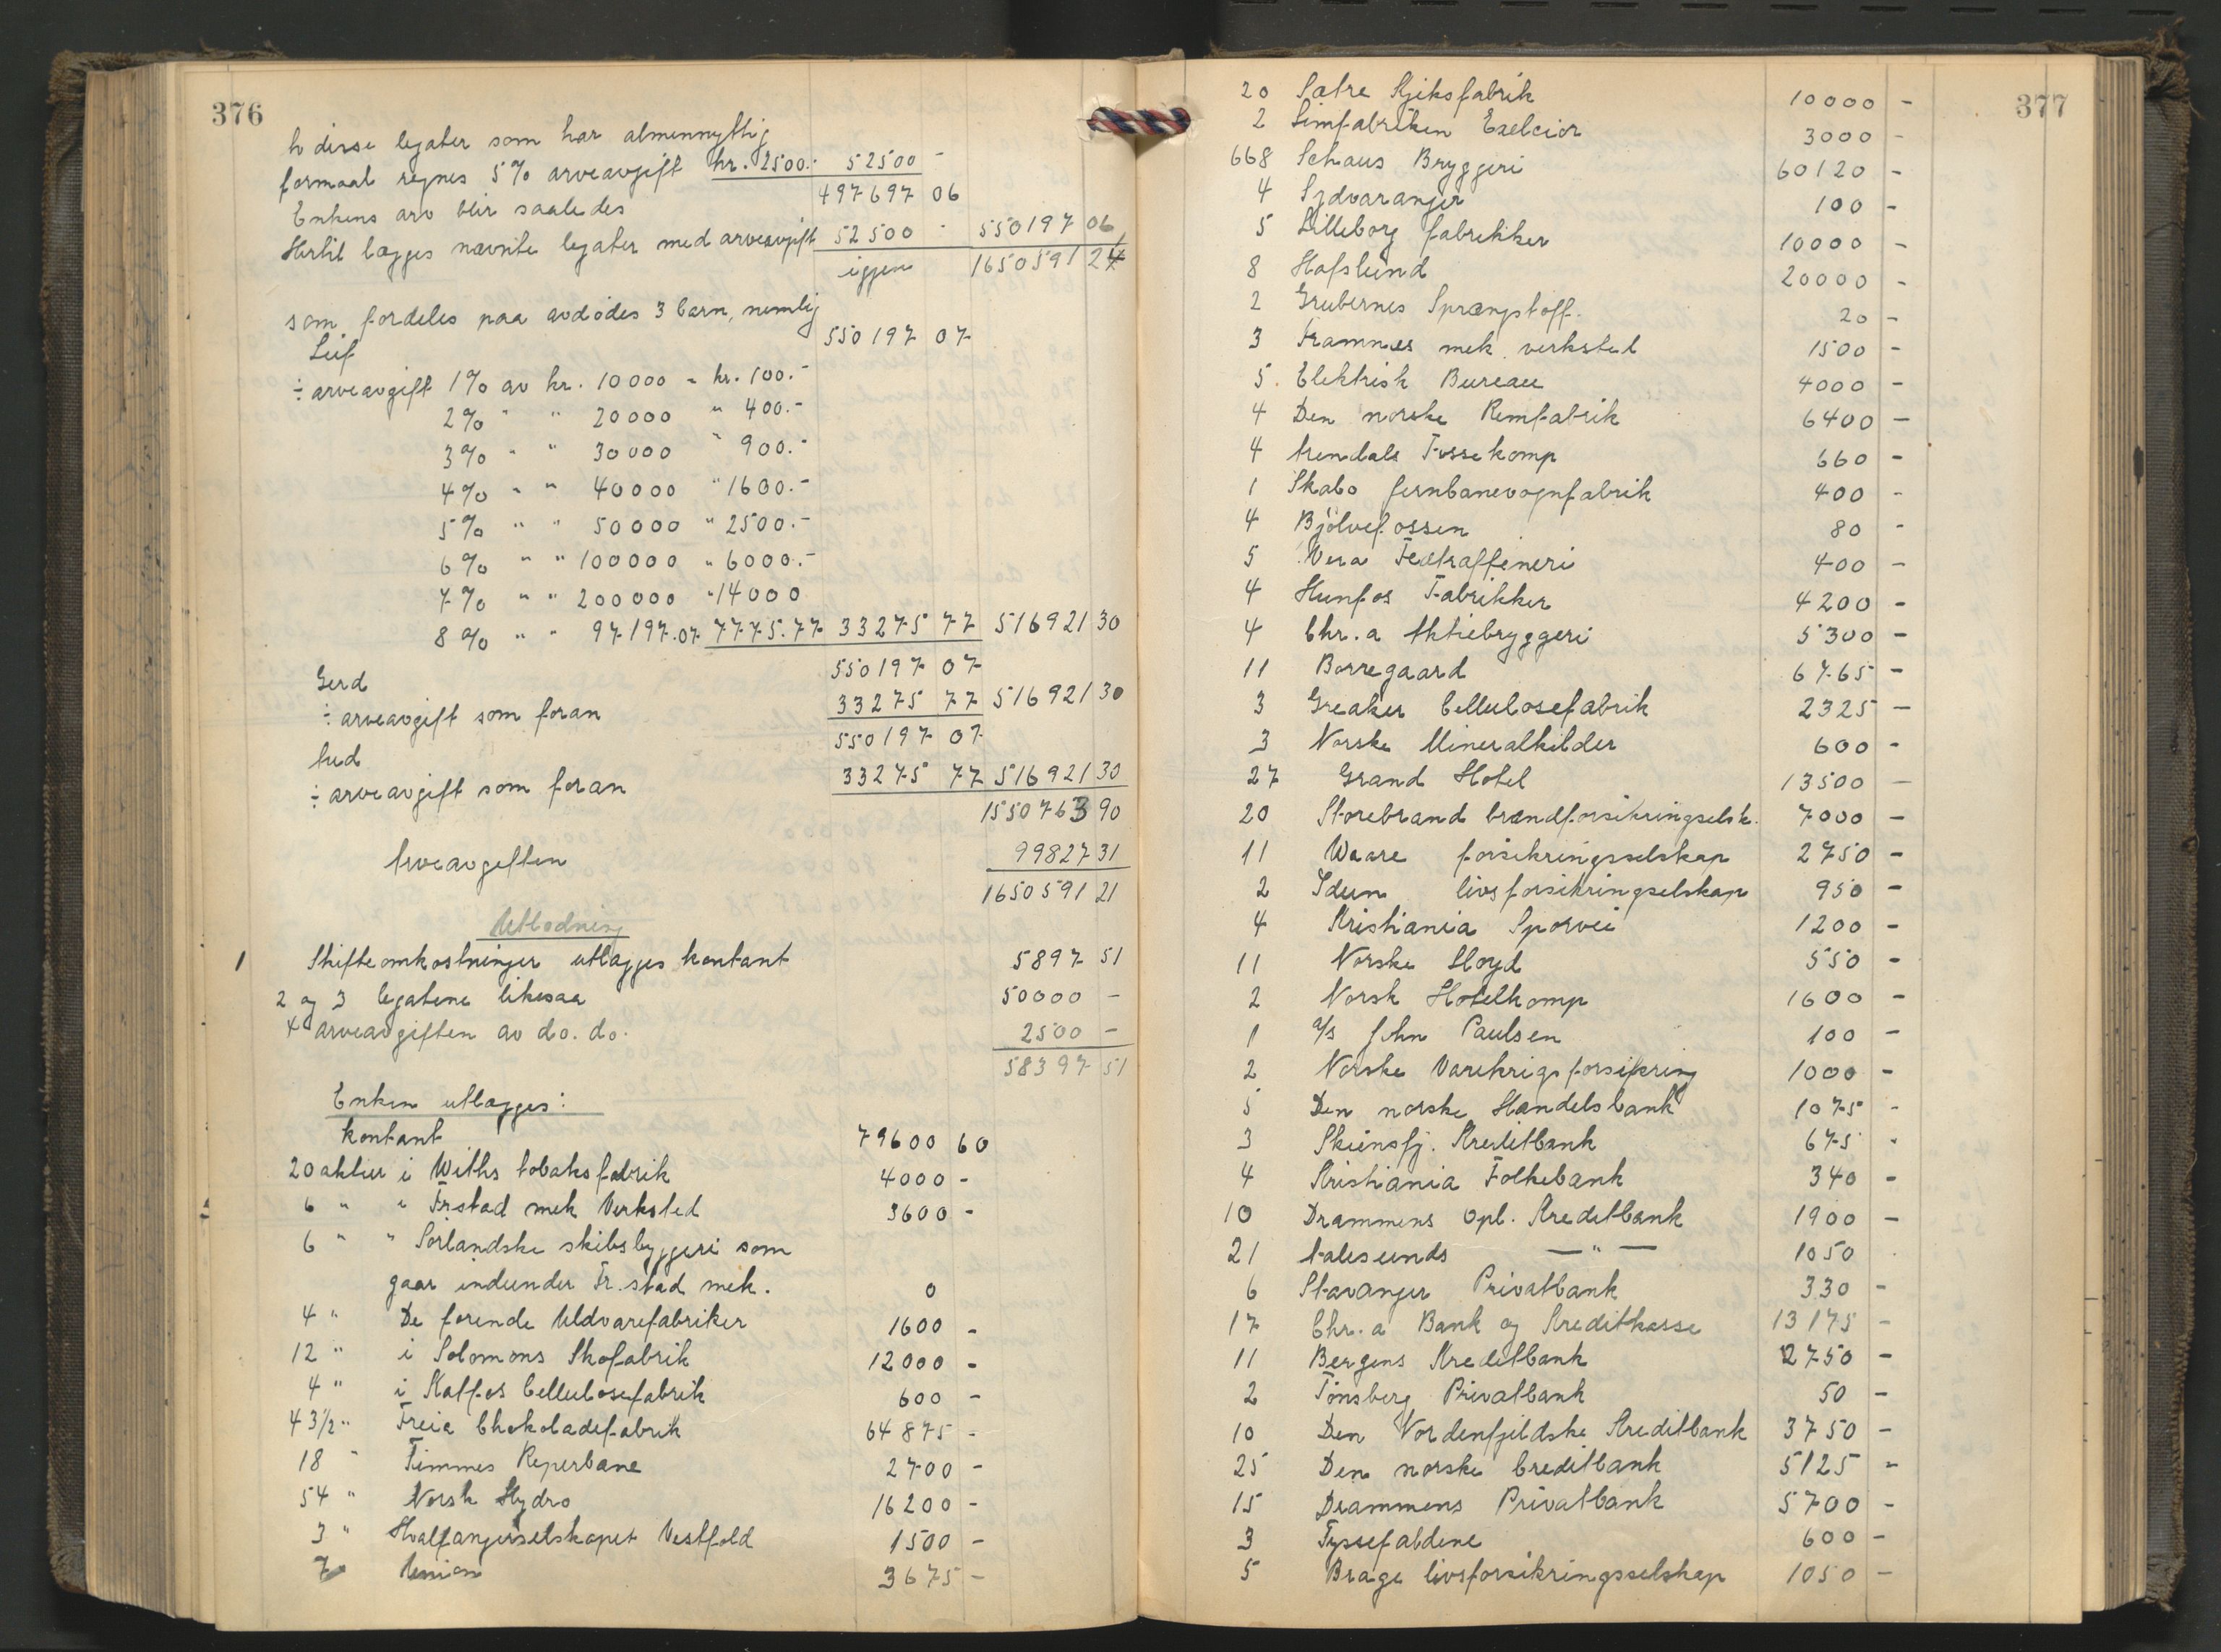 376
to disse legater som har almennyttig
formaal regnes 5% arveavgift kr. 2500.- 52500 -
497697 06
Enkens arv blir saaledes
Hertil lægges nævnte legater med arveavgift 52500 - 550197 06
igjen 1650591 24
som fordeles paa avdødes 3 barn, nemlig
Leif 550197 07
÷ arveavgift 1% av kr. 10000 = kr. 100.-
2% " " 20000 " 400.-
3% " " 30000 " 900.-
4% " " 40000 " 1600.-
5% " " 50000 " 2500.-
6% " " 100000 " 6000.-
7% " " 200000 " 14000
8% " " 97197.07 7775.77 33275 77 516921 30
Gerd 550197 07
÷ arveavgift som foran 33275 77 516921 30
Aud 550197 07
÷ arveavgift som foran 33275 77 516921 30
1550763 90
Arveavgiften 99827 31
1650591 21
Utlodning
1 Skifteomkostninger utlægges kontant 5897 51
2 og 3 legatene likesaa 50000 -
4 arveavgiften av do. do. 2500 -
58397 51
Enken utlægges:
kontant 79600 60
20 aktier i Withs tobaksfabrik 4000 -
6 " i Frstad mek Verksted 3600 -
6 " " Sørlandske skibsbyggeri som
gaar indunder Fr.stad mek. 0
4 " De forende Uldvarefabriker 1600 -
12 " i Solomons Skofabrik 12000 -
4 " i Kalfos Cellulosefabrik 600 -
43½ " Freia Chokoladefabrik 64875 -
18 " Fimmes Reperbane 2700 -
54 " Norsk Hydro 16200 -
3 " Hvalfangerselskapet Vestfold 1500 -
7 Union 3675 -
377
20 Sætre Kjeksfabrik 10000 -
2 Limfabriken Exelcior 3000 -
668 Schous Bryggeri 60120 -
4 Sydvaranger 100 -
5 Lilleborg fabrikker 10000 -
8 Hafslund 20000 -
2 Grubernes Sprængstoff. 20 -
3 Framnæs mek. verksted 1500 -
5 Elektrisk Bureau 4000 -
4 Den norske Remfabrik 6400 -
4 Arendals Fossekomp 660 -
1 Skabo Jernbanevognfabrik 400 -
4 Bjølvefossen 80 -
5 Vera Fedtraffeneri 400 -
4 Hunfos Fabrikker 4200 -
4 Chr.a Aktiebryggeri 5300 -
11 Borregaard 6765 -
3 Greaker Cellulosefabrik 2325 -
3 Norske Mineralkilder 600 -
27 Grand Hotel 13500 -
20 Storebrand brandforsikringselsk. 7000 -
11 Waare forsikringsselskap 2750 -
2 Idun livsforsikringselskap 950 -
4 Kristiania Sporvei 1200 -
11 Norske Lloyd 550 -
2 Norsk Hotelkomp 1600 -
1 a/s John Paulsen 100 -
2 Norske Varekrigsforsikring 1000 -
5 Den norske Handelsbank 1075 -
3 Skiensfj. Kreditbank 675 -
4 Kristiania Folkebank 340 -
10 Drammens Opl. Kreditbank 1900 -
21 Aalesunds — " — 1050
6 Stavanger Privatbank 330 -
17 Chr.a Bank og Kreditkasse 13175 -
11 Bergens Kreditbank 2750 -
2 Tønsberg Privatbank 50 -
10 Den Nordenfjeldske Kreditbank 3750 -
25 Den norske Creditbank 5125 -
15 Drammens Privatbank 5700 -
3 Tyssefaldene 600 -
5 Brage livsforsikringsselskap 1050 -